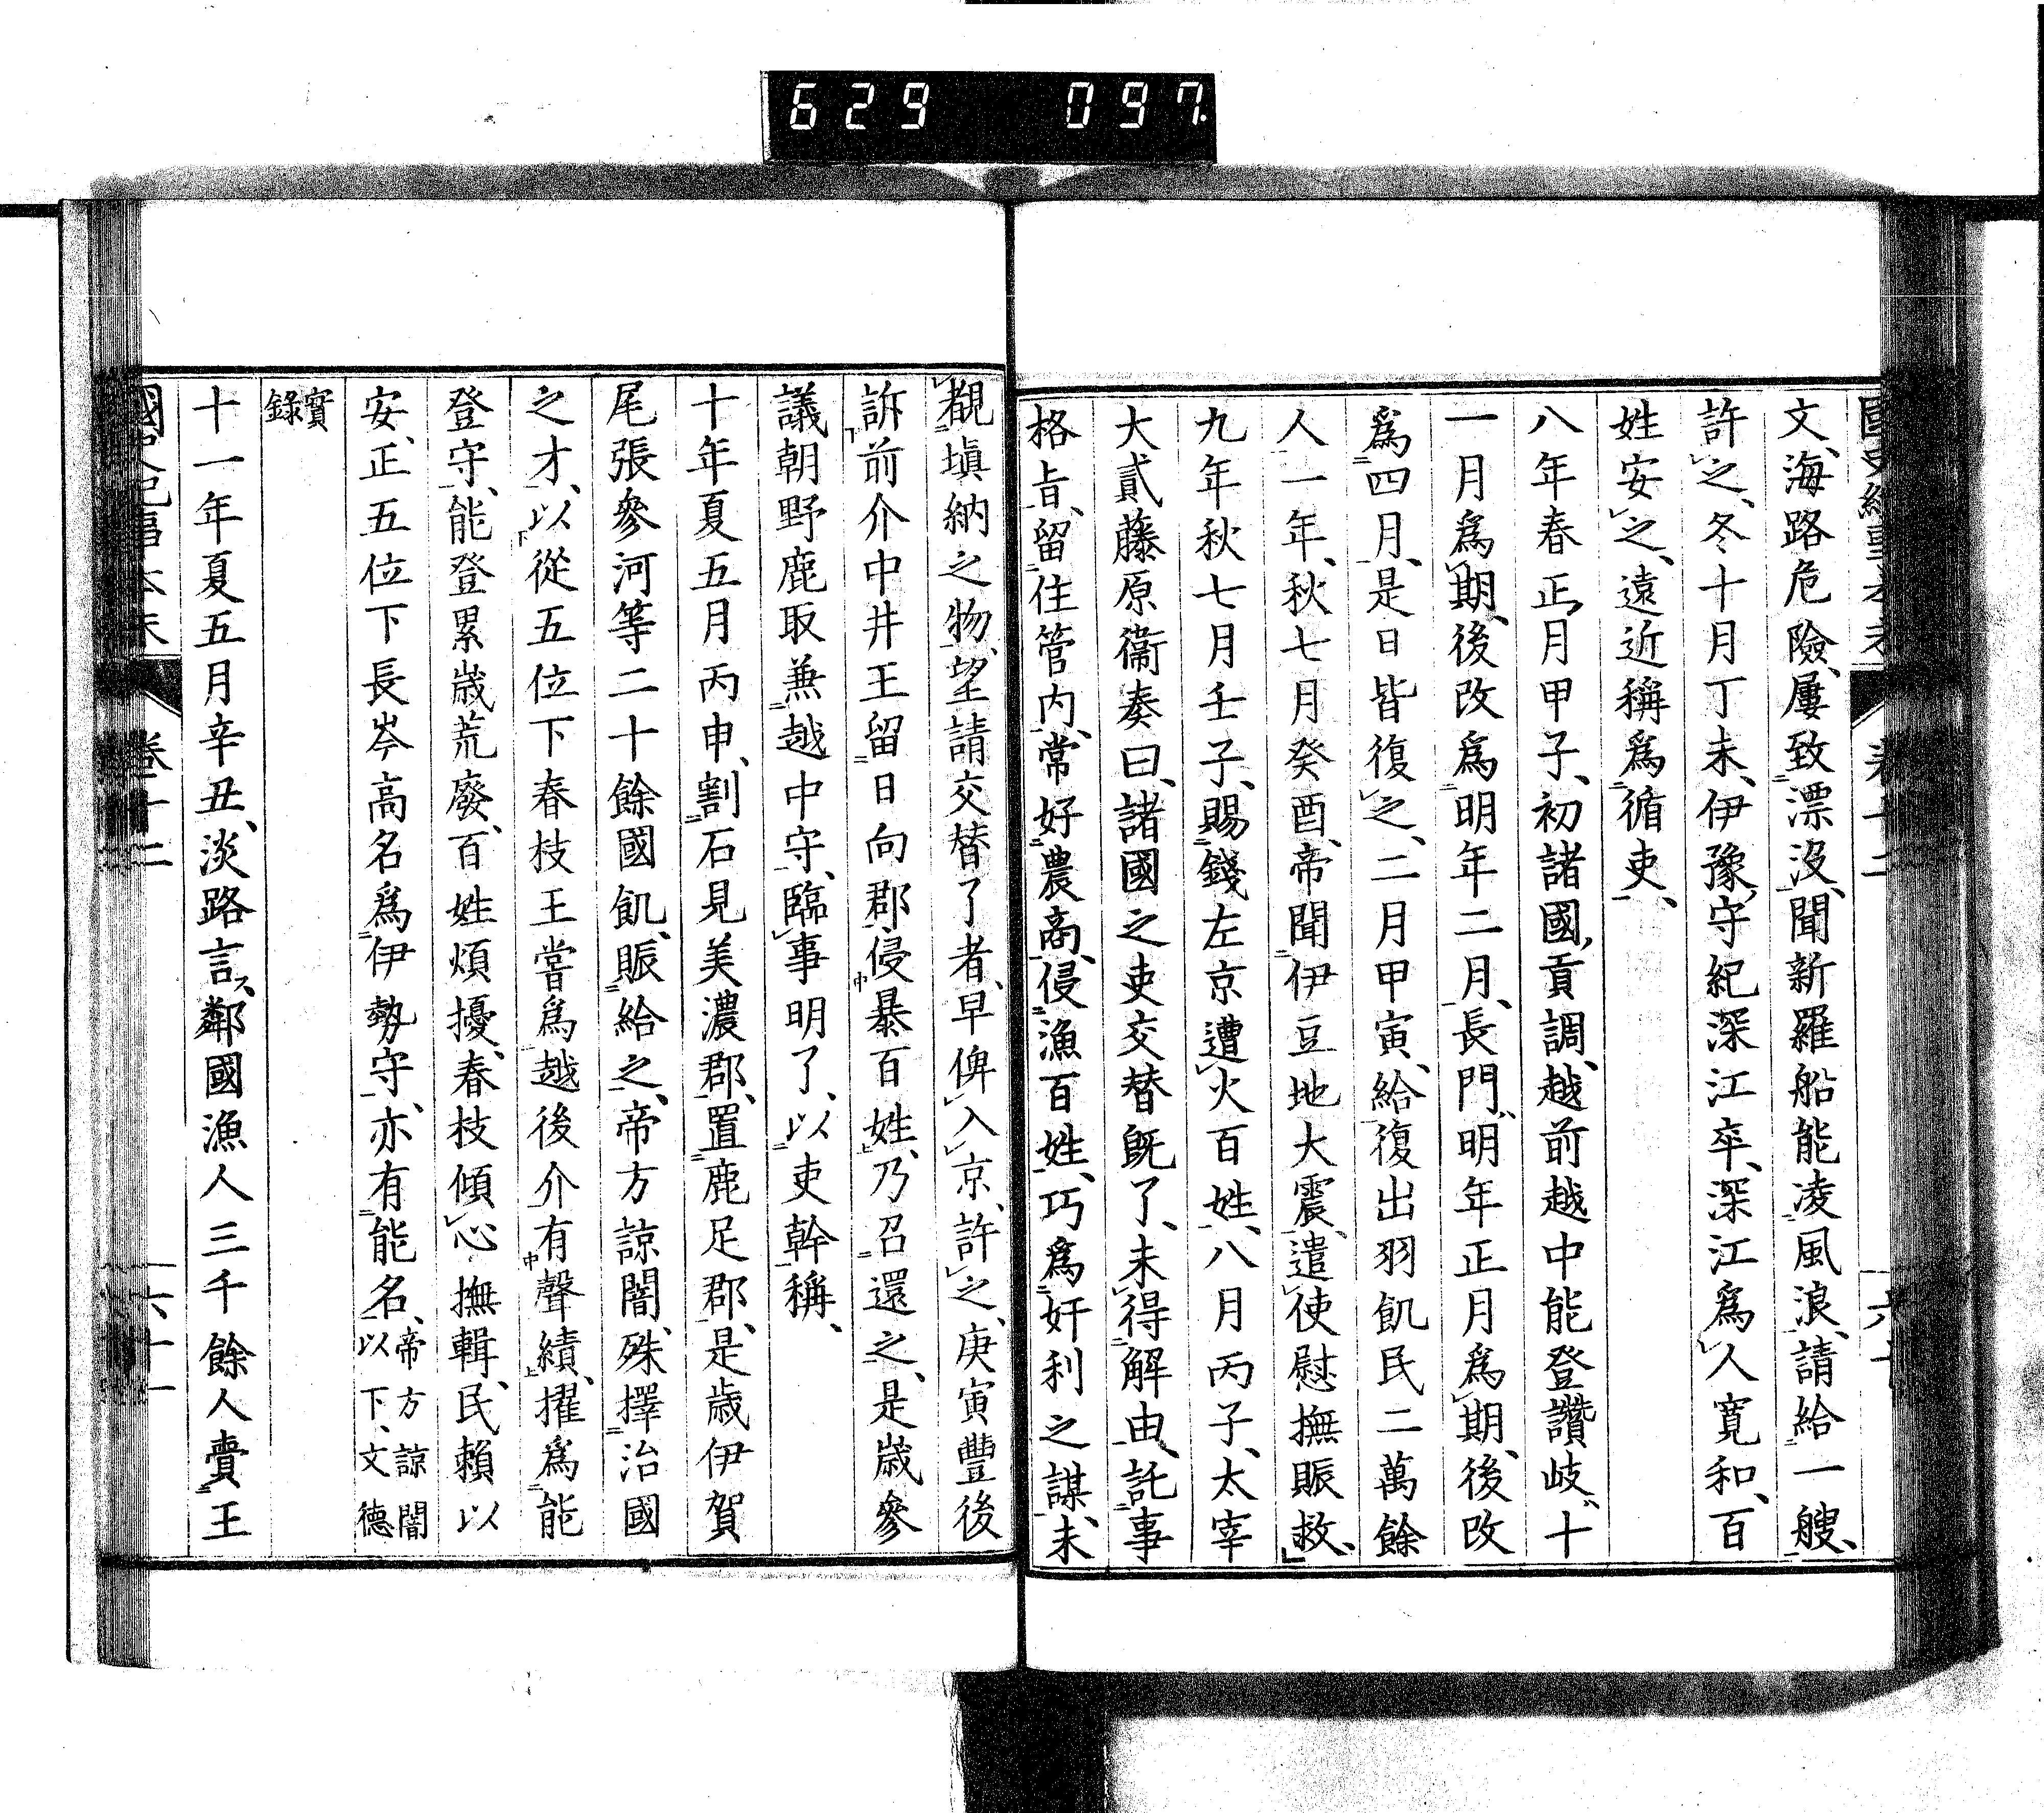 629 097.
文、海路危險、屢致漂沒、聞新羅船能凌風浪、請給一艘、
許之、冬十月丁未、伊豫守紀深江卒、深江爲人寬和、百
姓安之、遠近稱爲循吏、
八年春正月甲子、初諸國貢調、越前越中能登讚岐、十
一月爲期、後改爲明年二月、長門、明年正月爲期、後改
爲四月、是日皆復之、二月甲寅、給復出羽飢民二萬餘
人一年、秋七月癸酉、帝聞伊豆地大震、遣使慰撫賑救、
九年秋七月壬子、賜錢左京遭火百姓、八月丙子、太宰
大貳藤原衞奏曰、諸國之吏交替既了、未得解由、託事
格旨、留住管內、常好農商、侵漁百姓、巧爲奸利之謀、未
覩塡納之物、望請交替了者、早俾入京、許之、庚寅豐後
訴前介中井王留日向郡、侵暴百姓、乃召還之、是歲參
議朝野鹿取兼越中守、臨事明了、以吏幹稱、
十年夏五月丙申、割石見美濃郡、置鹿足郡、是歲伊賀
尾張參河等二十餘國飢、賑給之、帝方諒闇、殊擇治國
之才、以從五位下春枝王嘗爲越後介有聲績、擢爲能
登守、能登累歲荒廢、百姓煩擾、春枝傾心撫輯、民賴以
安、正五位下長岑高名爲伊勢守、亦有能名、帝方諒闇以下、文德
實錄
十一年夏五月辛丑、淡路言、鄰國漁人三千餘人賷王
國史紀事本末 卷十二 六十一